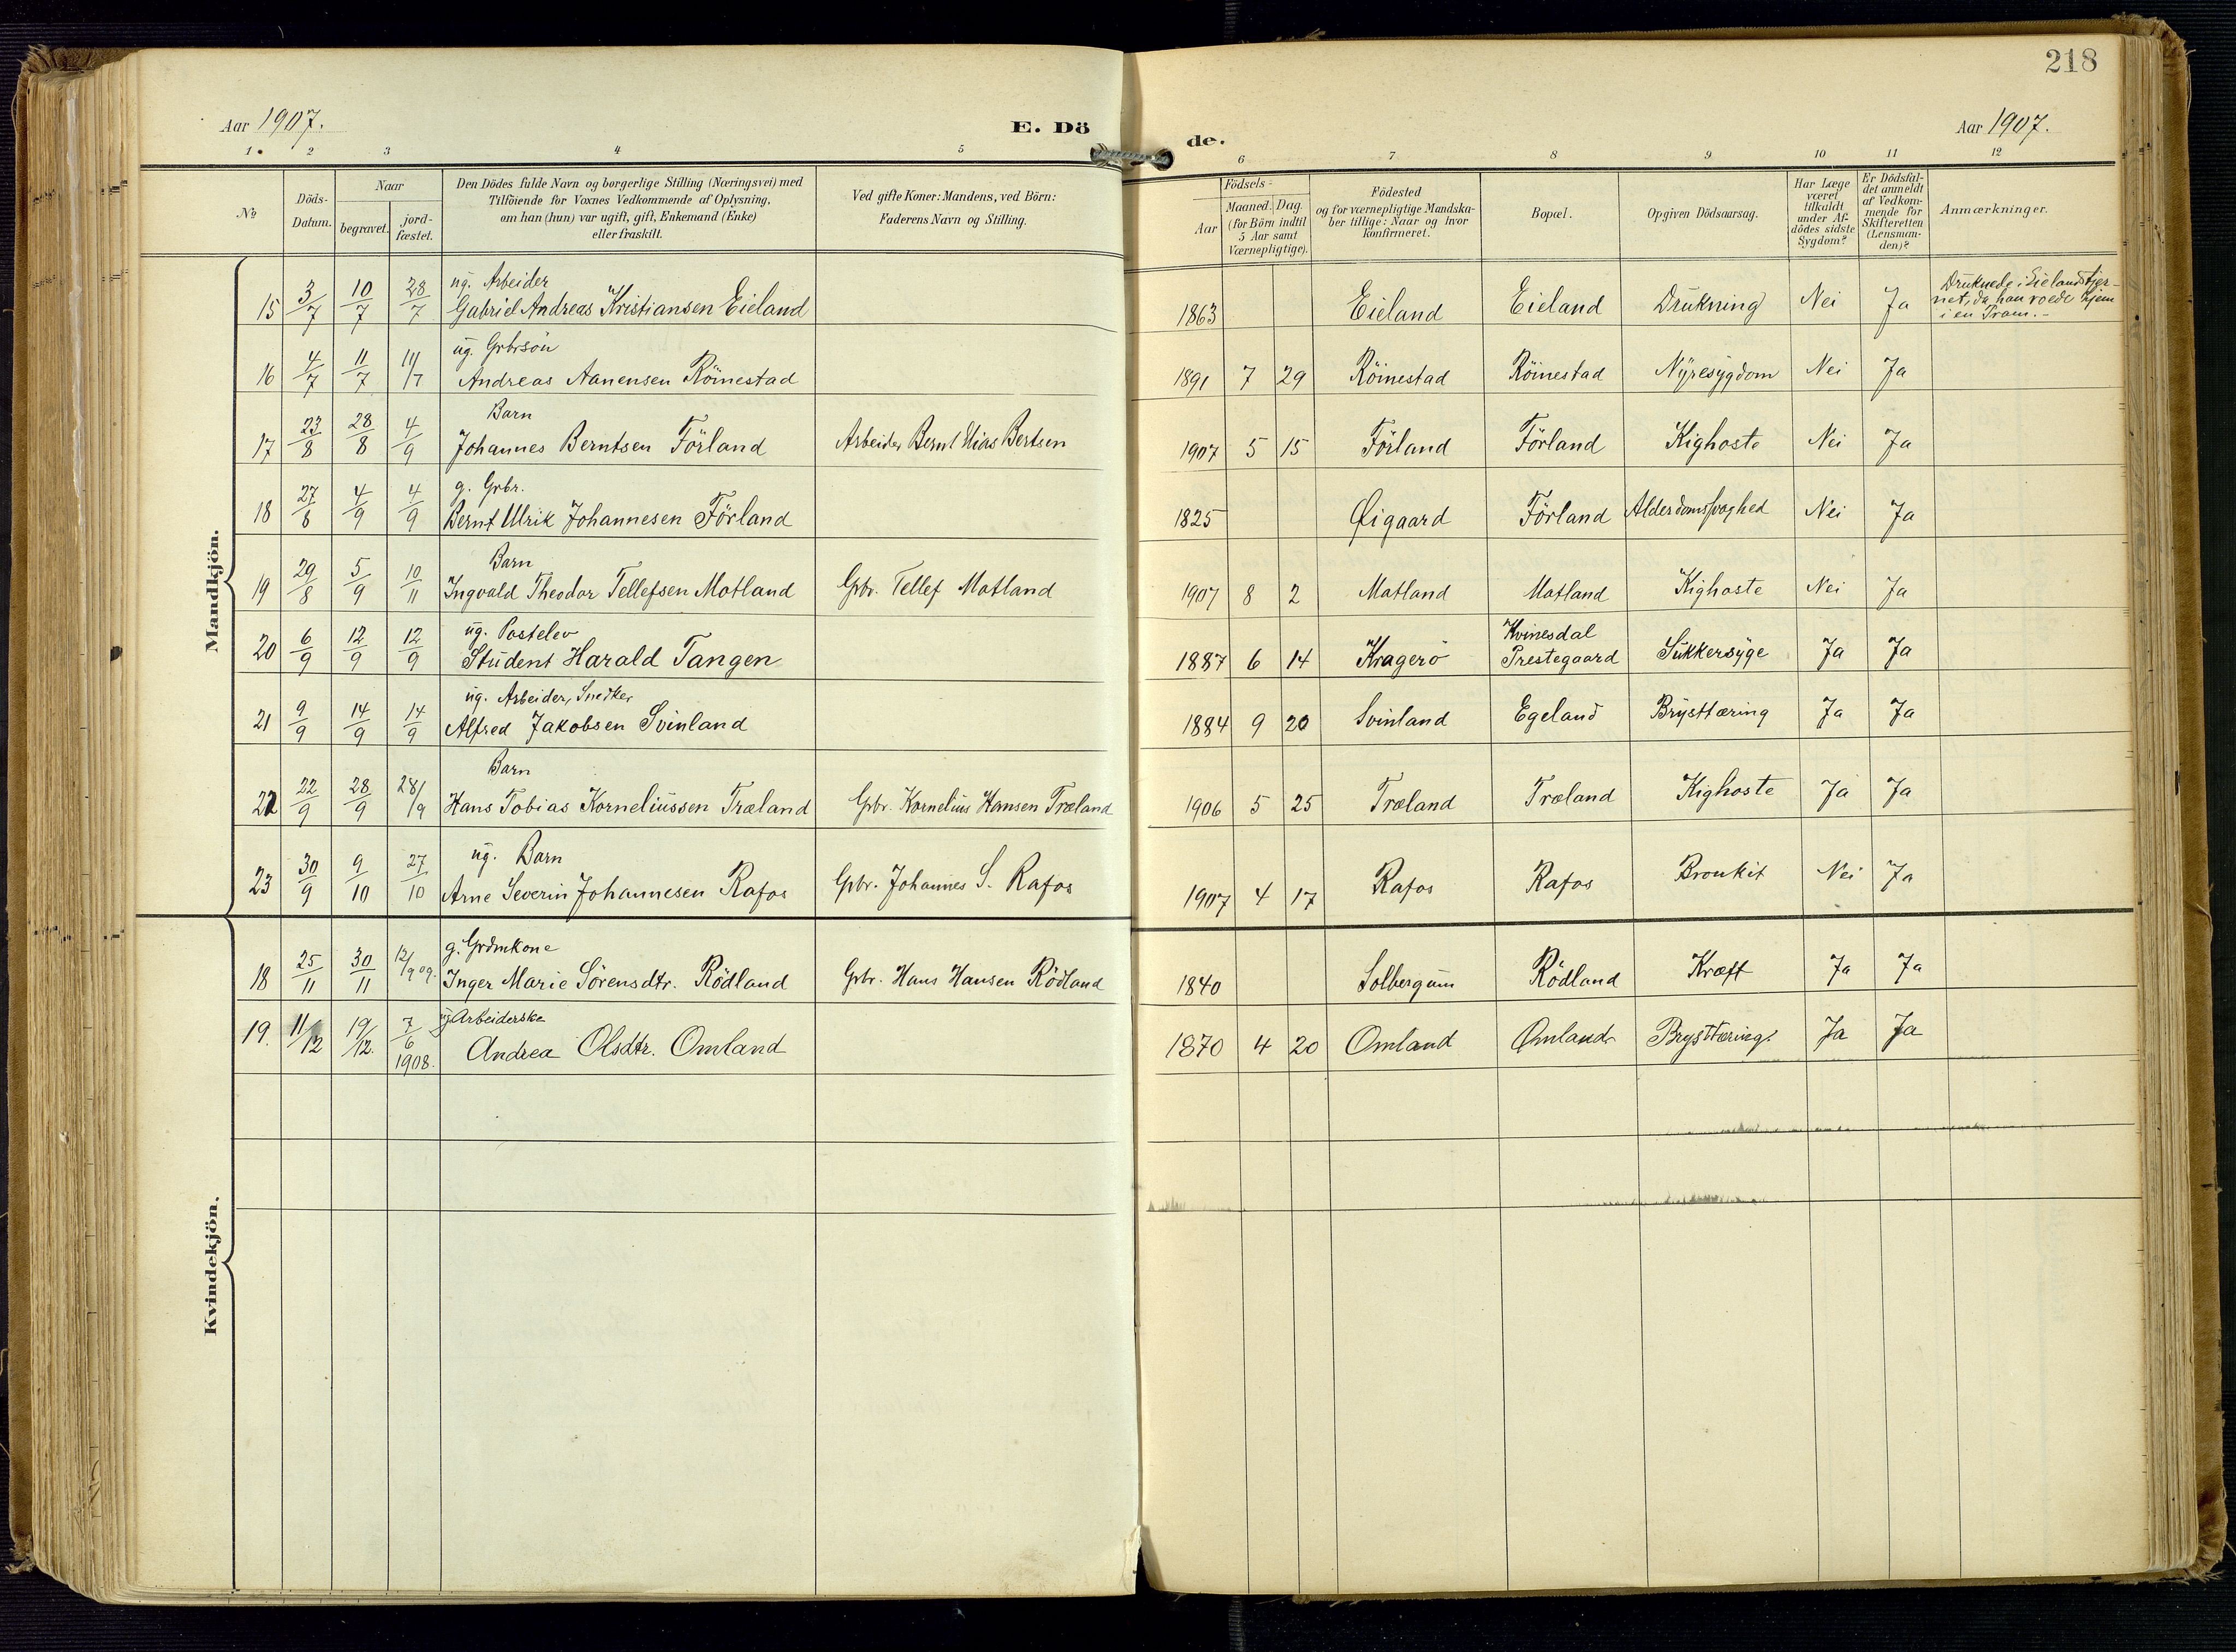 218
Aar 1907. E. Dö de. Aar 1907.
1 2 3 4 5 6 7 8 9 10 11 12
№ | Döds-Datum. | Naar begravet. | jord-fæstet. | Den Dödes fulde Navn og borgerlige Stilling (Næringsvei) med Tilföiende for Voxnes Vedkommende af Oplysning, om han (hun) var ugift, gift, Enkemand (Enke) eller fraskilt. | Ved gifte Koner: Mandens, ved Börn: Faderens Navn og Stilling. | Födsels- Aar | Maaned. Dag. (for Börn indtil 5 Aar samt Værnepligtige). | Födested og for værnepligtige Mandskaber tillige: Naar og hvor konfirmeret. | Bopæl. | Opgiven Dödsaarsag. | Har Læge været tilkaldt under Afdödes sidste Sygdom? | Er Dödsfaldet anmeldt af Vedkommende for Skifteretten (Lensmanden)? | Anmærkninger.
Mandkjön.
15 | 3/7 | 10/7 | 28/7 | ug. Arbeider Gabriel Andreas Kristiansen Eieland | 1863 | Eieland | Eieland | Drukning | Nei | Ja | Druknede i Eielandstjernet, da han roede hjem i en Pram.-
16 | 4/7 | 11/7 | 11/7 | ug. Grbrsön Andreas Aanensen Röinestad | 1891 | 7 | 29 | Röinestad | Röinestad | Nyresygdom | Nei | Ja
17 | 23/8 | 28/8 | 4/9 | Barn Johannes Berntsen Förland | Arbeider Bernt Elias Bertsen | 1907 | 5 | 15 | Förland | Förland | Kighoste | Nei | Ja
18 | 27/8 | 4/9 | 4/9 | g. Grbr. Bernt Ulrik Johannesen Förland | 1825 | Øigaard | Förland | Alderdomssvaghed | Nei | Ja
19 | 29/8 | 5/9 | 10/11 | Barn Ingvald Theodor Tellefsen Motland | Gbr. Tellef Motland | 1907 | 8 | 2 | Motland | Motland | Kighoste | Nei | Ja
20 | 6/9 | 12/9 | 12/9 | ug. Postelev Student Harald Tangen | 1887 | 6 | 14 | Kragerö | Kvinesdal Prestegaard | Sukkersyge | Ja | Ja
21 | 9/9 | 14/9 | 14/9 | ug. Arbeider, Snedker Alfred Jakobsen Svinland | 1884 | 9 | 20 | Svinland | Egeland | Brysttæring | Ja | Ja
22 | 22/9 | 28/9 | 28/9 | Barn Hans Tobias Korneliussen Træland | Gbr. Kornelius Hansen Træland | 1906 | 5 | 25 | Træland | Træland | Kighoste | Ja | Ja
23 | 30/9 | 9/10 | 27/10 | ug. Barn Arne Severin Johannesen Rafos | Gbr. Johannes S. Rafos | 1907 | 4 | 17 | Rafos | Rafos | Bronkit | Nei | Ja
Kvindekjön.
18 | 25/11 | 30/11 | 12/9 09. | g. Grdmkone Inger Marie Sörensdtr. Rödland | Gbr. Hans Hansen Rödland | 1840 | Solbergum | Rödland | Kræft | Ja | Ja
19. | 11/12 | 19/12. | 7/6 1908. | ug Arbeiderske Andrea Olsdtr. Omland | 1870 | 4 | 20 | Omland | Omland | Brysttæring. | Ja | Ja